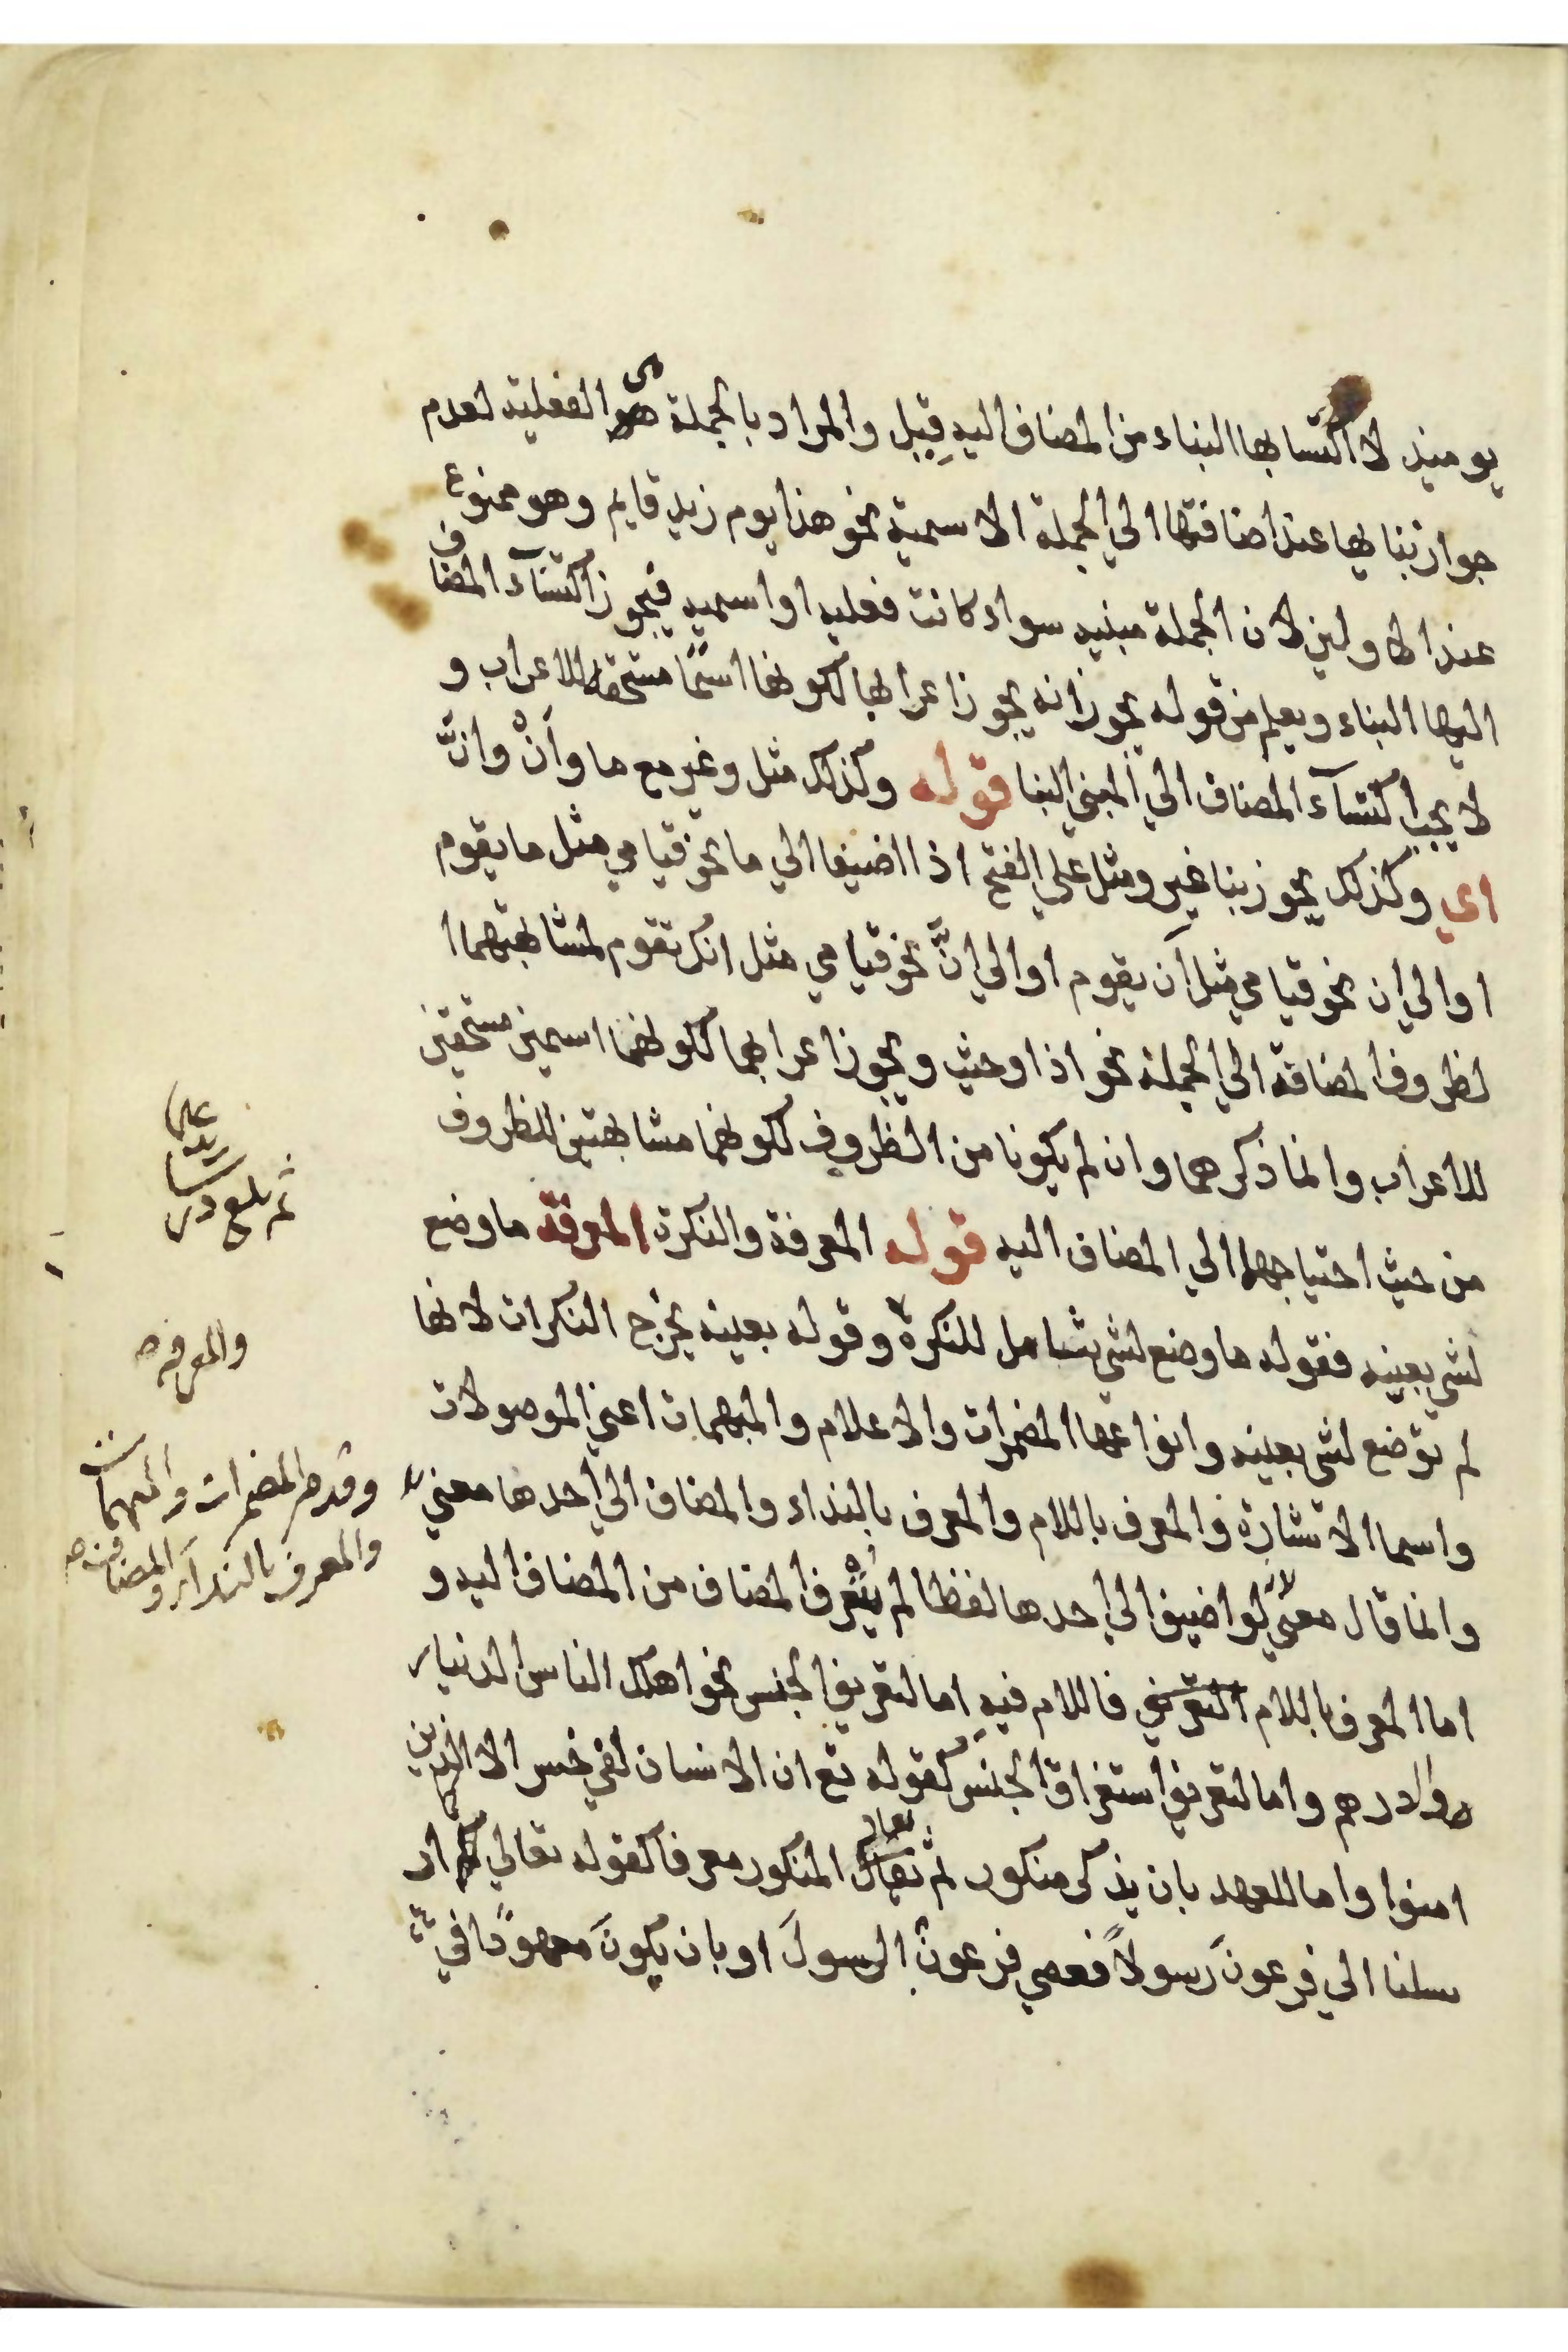 يوميذ لاكتسابها البناء من المضاف اليه قِيل والمراد بالجملة هي الفعلية لعدم
جواز بنايها عند اضافتها الي الجملة الاسمية نحو هذا يوم زيد قايم وهو ممنوع
عند الاولين لان الجملة مبنيه سواء كانت فعليه او اسميه فيجوز اكتساء المضاف
اليها البناء ويعلم من قوله يجوز انه يجوز اعرابها لكونها اسمًا مستحقا للاعراب و
لا يجب اكتسآء المضاف الي المبني البنا قوله وكذلك مثل وغير مع ما وأنْ وانَّ
اي وكذلك يجوز بنا غير ومثل علي الفتح اذا اضيفا الي ما نحو قيامي مثل ما يقوم
او الي ان نحو قيامي مثل ان يقوم او الي انَّ نحو قيامي مثل انك تقوم لمشابهتهما ا
لظروف المضافة الي الجملة نحو اذ او حيث ويجوز اعرابهما لكونهما اسمين مستحقين
للاعراب وانما ذكرهما وان لم يكونا من الظروف لكونهما مشابهتين للظروف
من حيث احتياجهما الي المضاف اليه قوله المعرفة والنكرة المعرفة ما وضع
لشي بعينه فقوله ما وضع لشي شامل للنكرة وقوله بعينه يخرج النكرات لانها
لم توضع لشي بعينه وانواعها المضمرات والاعلام والمبهمات اعني الموصولات
واسما الاشارة والمعرف باللام والمعرف بالنداء والمضاف الي احدها معني
وانما قال معني لانه لو اضيف الي احدها لفظا لم يتعرف المضاف من المضاف اليه و
اما المعرف باللام التعريفي فاللام فيه اما لتعريف الجنس نحو اهلك الناس الدينار
والدرهم واما لتعريف استغراق الجنس كقوله تع ان الانسان لفي خسر الا الذين
امنوا واما للعهد بان يذكر منكور ثم يعاد المنكور معرفا كقوله تعالي كما ار
سلنا الي فرعونَ رسولاً فعصي فرعونُ الرسولَ او بان يكونَ معهودًا في
والمعرفه
وقدم المضمرات والمبهمات
والمعرف بالندآء والمضاف